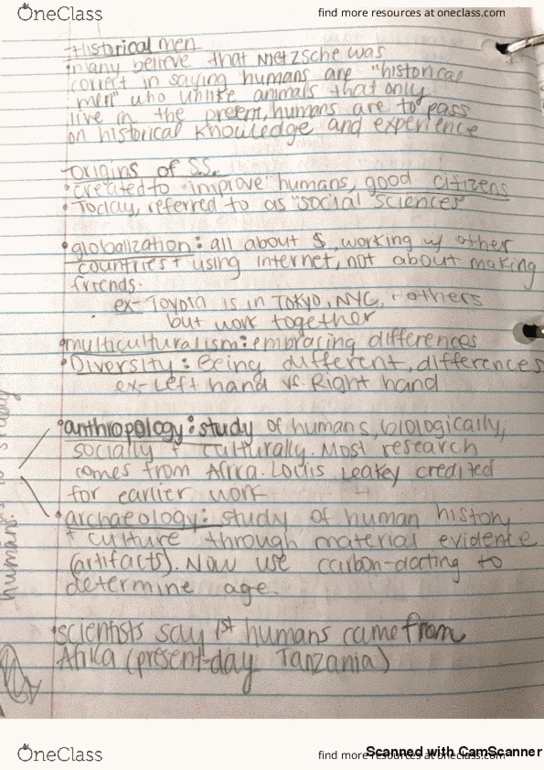 OneClass
find more resources at oneclass.com
Historical men
•many believe that Nietzsche was
correct in saying humans are "historical
men" who unlike animals that only
live in the present, humans are to pass
on historical knowledge and experience
origins of S.S.
•created to "improve" humans, good citizens
•Today, referred to as "social sciences"
•globalization: all about $, working w/ other
countries + using internet, not about making
friends.
ex- Toyota is in TOKYO, NYC, + others
but work together
•multiculturalism: embracing differences
•Diversity: Being different, differences
ex- Left hand vs. Right hand
•anthropology: study of humans, biologically,
socially + culturally. Most research
comes from Africa. Louis Leakey credited
for earlier work
•archaeology: study of human history
+ culture through material evidence
(artifacts). Now use carbon-dating to
determine age.
humans
•scientists say 1st humans came from
Afrika (present-day Tanzania)
OneClass
find more resources at oneclass.com
Scanned with CamScanner